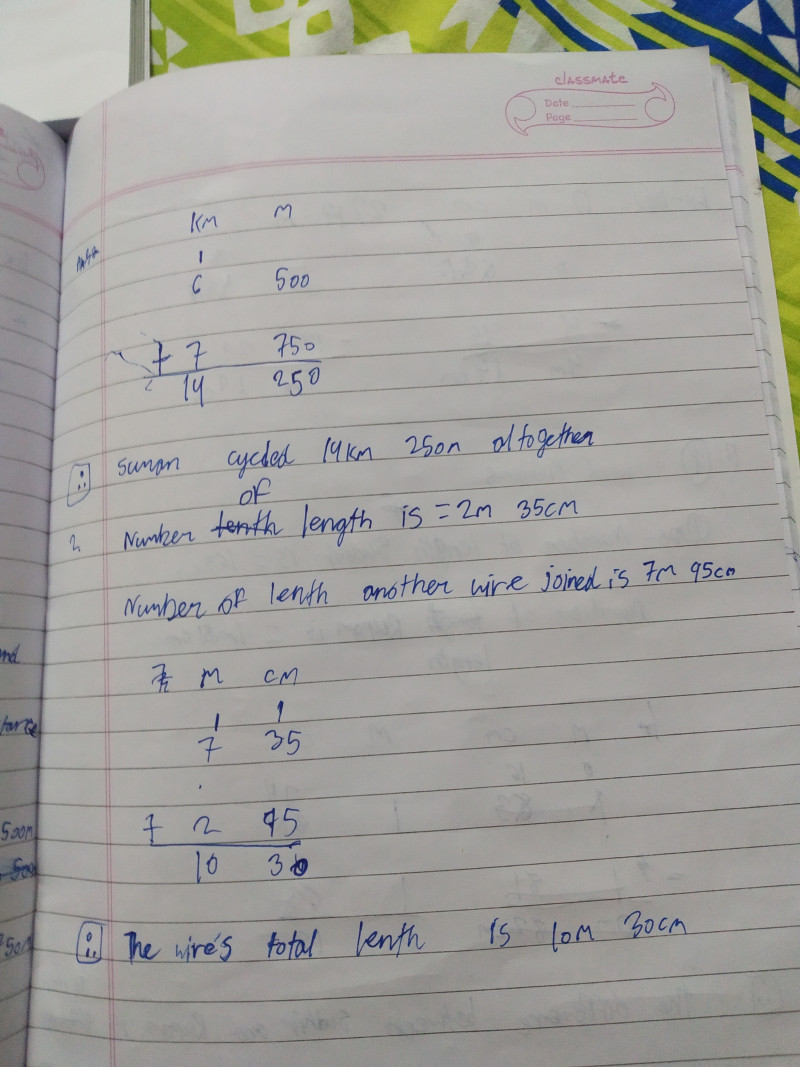 classmate
Date
Page
KM M
1
6 500
+ 7 750
14 250
∴ suman cycled 14KM 250m altogether
of
2. Number tenth length is = 2m 35cm
Number of lenth another wire joined is 7m 95cm
M CM
1 1
7 35
+ 2 95
10 30
∴ The wire's total lenth is 10M 30cm
nd
500m